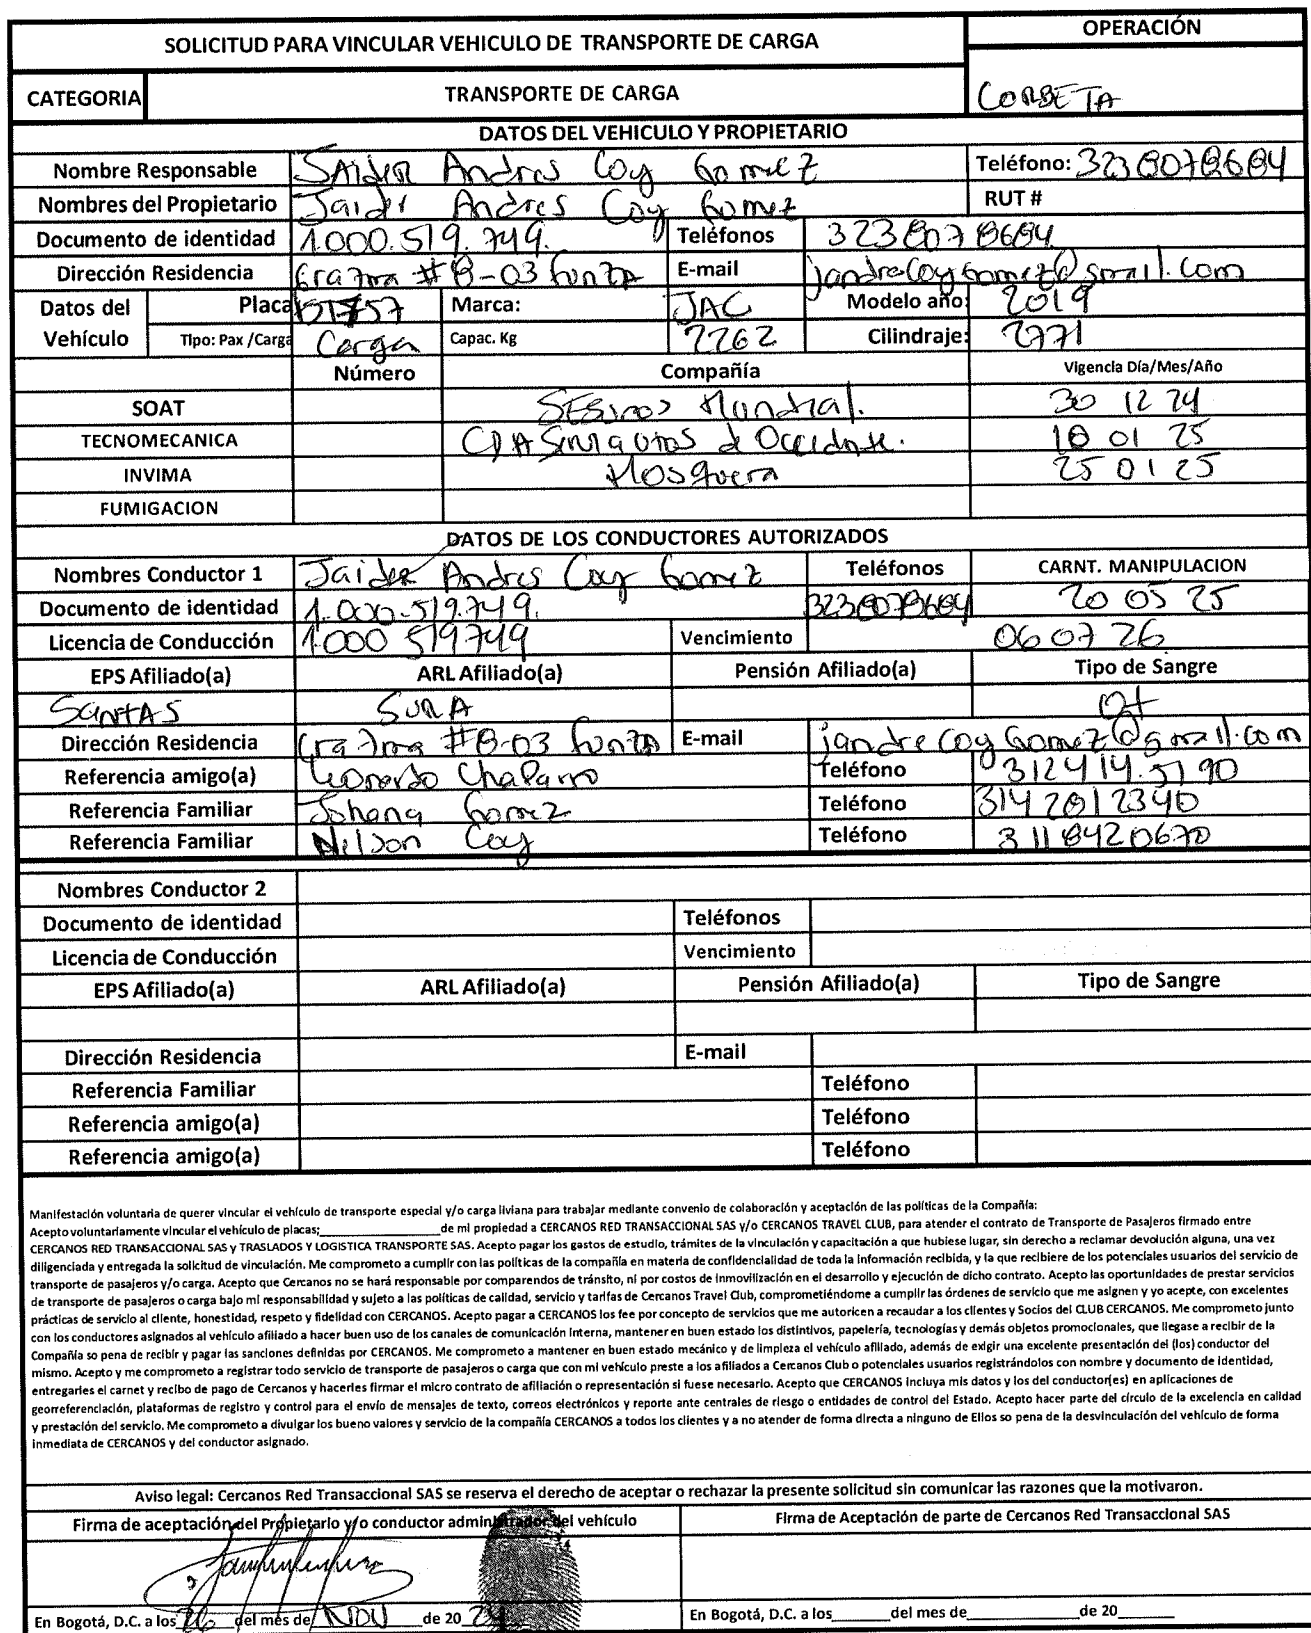 SOLICITUD PARA VINCULAR VEHICULO DE TRANSPORTE DE CARGA
OPERACIÓN
CATEGORIA TRANSPORTE DE CARGA CORBETA
DATOS DEL VEHICULO Y PROPIETARIO
Nombre Responsable JAIDER Andres Coy Gomez Teléfono: 3238078684
Nombres del Propietario Jaider Andres Coy Gomez RUT #
Documento de identidad 1.000.519.749. Teléfonos 3238078684
Dirección Residencia Cra 7ma #8-03 Funza E-mail jandrecoygomez@gmail.com
Datos del Vehículo Placa Marca: JAC Modelo año: 2019
Tipo: Pax /Carga Carga Capac. Kg 2262 Cilindraje: 2771
Número Compañía Vigencia Día/Mes/Año
SOAT Seguros Mundial. 30 12 24
TECNOMECANICA CDA de Occidente. 18 01 25
INVIMA Mosquera 25 01 25
FUMIGACION
DATOS DE LOS CONDUCTORES AUTORIZADOS
Nombres Conductor 1 Jaider Andres Coy Gomez Teléfonos CARNT. MANIPULACION
Documento de identidad 1.000.519.749. 3238078684 20 05 25
Licencia de Conducción 1.000 519749 Vencimiento 06 07 26
EPS Afiliado(a) ARL Afiliado(a) Pensión Afiliado(a) Tipo de Sangre
SURA O+
Dirección Residencia Cra 7ma #8-03 Funza E-mail jandrecoygomez@gmail.com
Referencia amigo(a) Leonardo Chaparro Teléfono 312414.5190
Referencia Familiar Johana Gomez Teléfono 3142012340
Referencia Familiar Nilson Coy Teléfono 3118420670
Nombres Conductor 2
Documento de identidad Teléfonos
Licencia de Conducción Vencimiento
EPS Afiliado(a) ARL Afiliado(a) Pensión Afiliado(a) Tipo de Sangre
Dirección Residencia E-mail
Referencia Familiar Teléfono
Referencia amigo(a) Teléfono
Referencia amigo(a) Teléfono
Manifestación voluntaria de querer vincular el vehículo de transporte especial y/o carga liviana para trabajar mediante convenio de colaboración y aceptación de las políticas de la Compañía:
Acepto voluntariamente vincular el vehículo de placas;____________________de mi propiedad a CERCANOS RED TRANSACCIONAL SAS y/o CERCANOS TRAVEL CLUB, para atender el contrato de Transporte de Pasajeros firmado entre
CERCANOS RED TRANSACCIONAL SAS y TRASLADOS Y LOGISTICA TRANSPORTE SAS. Acepto pagar los gastos de estudio, trámites de la vinculación y capacitación a que hubiese lugar, sin derecho a reclamar devolución alguna, una vez
diligenciada y entregada la solicitud de vinculación. Me comprometo a cumplir con las políticas de la compañía en materia de confidencialidad de toda la información recibida, y la que recibiere de los potenciales usuarios del servicio de
transporte de pasajeros y/o carga. Acepto que Cercanos no se hará responsable por comparendos de tránsito, ni por costos de inmovilización en el desarrollo y ejecución de dicho contrato. Acepto las oportunidades de prestar servicios
de transporte de pasajeros o carga bajo mi responsabilidad y sujeto a las políticas de calidad, servicio y tarifas de Cercanos Travel Club, comprometiéndome a cumplir las órdenes de servicio que me asignen y yo acepte, con excelentes
prácticas de servicio al cliente, honestidad, respeto y fidelidad con CERCANOS. Acepto pagar a CERCANOS los fee por concepto de servicios que me autoricen a recaudar a los clientes y Socios del CLUB CERCANOS. Me comprometo junto
con los conductores asignados al vehículo afiliado a hacer buen uso de los canales de comunicación interna, mantener en buen estado los distintivos, papelería, tecnologías y demás objetos promocionales, que llegase a recibir de la
Compañía so pena de recibir y pagar las sanciones definidas por CERCANOS. Me comprometo a mantener en buen estado mecánico y de limpieza el vehículo afiliado, además de exigir una excelente presentación del (los) conductor del
mismo. Acepto y me comprometo a registrar todo servicio de transporte de pasajeros o carga que con mi vehículo preste a los afiliados a Cercanos Club o potenciales usuarios registrándolos con nombre y documento de identidad,
entregarles el carnet y recibo de pago de Cercanos y hacerles firmar el micro contrato de afiliación o representación si fuese necesario. Acepto que CERCANOS incluya mis datos y los del conductor(es) en aplicaciones de
georreferenciación, plataformas de registro y control para el envío de mensajes de texto, correos electrónicos y reporte ante centrales de riesgo o entidades de control del Estado. Acepto hacer parte del círculo de la excelencia en calidad
y prestación del servicio. Me comprometo a divulgar los bueno valores y servicio de la compañía CERCANOS a todos los clientes y a no atender de forma directa a ninguno de Ellos so pena de la desvinculación del vehículo de forma
inmediata de CERCANOS y del conductor asignado.
Aviso legal: Cercanos Red Transaccional SAS se reserva el derecho de aceptar o rechazar la presente solicitud sin comunicar las razones que la motivaron.
Firma de aceptación del Propietario y/o conductor administrador del vehículo Firma de Aceptación de parte de Cercanos Red Transaccional SAS
En Bogotá, D.C. a los 26 del mes de NOV de 20 24 En Bogotá, D.C. a los_______del mes de______________de 20_______